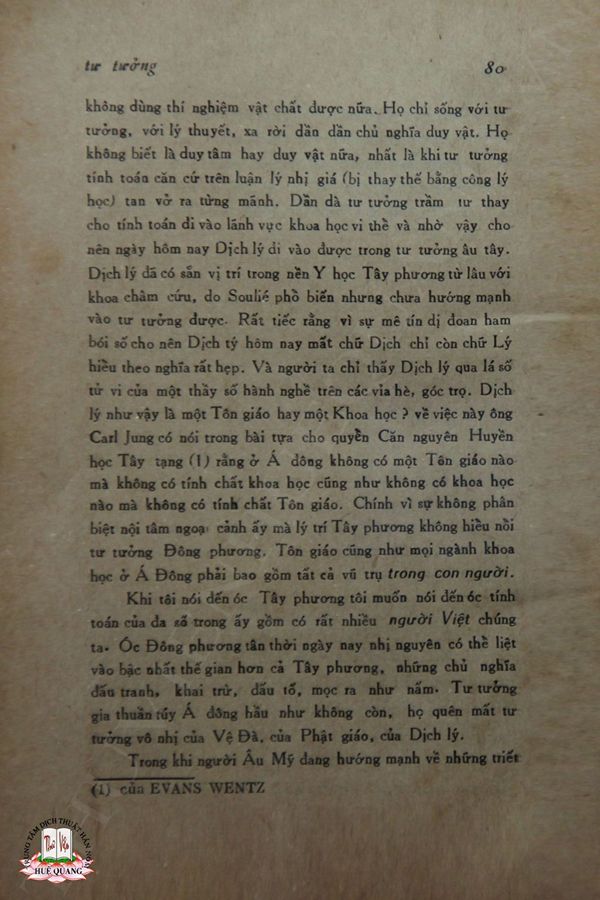 tư tưởng 80
không dùng thí nghiệm vật chất được nữa. Họ chỉ sống với tư
tưởng, với lý thuyết, xa rời dần dần chủ nghĩa duy vật. Họ
không biết là duy tâm hay duy vật nữa, nhất là khi tư tưởng
tính toán căn cứ trên luận lý nhị giá (bị thay thế bằng công lý
học) tan vở ra từng mãnh. Dần dà tư tưởng trầm tư thay
cho tính toán đi vào lãnh vực khoa học vi thề và nhờ vậy cho
nên ngày hôm nay Dịch lý đi vào được trong tư tưởng âu tây.
Dịch lý đã có sẳn vị trí trong nền Y học Tây phương từ lâu với
khoa châm cứu, do Soulié phổ biến nhưng chưa hướng mạnh
vào tư tưởng được. Rất tiếc rằng vì sự mê tín dị đoan ham
bói số cho nên Dịch tý hôm nay mất chữ Dịch chỉ còn chữ Lý
hiểu theo nghĩa rất hẹp. Và người ta chỉ thấy Dịch lý qua lá số
tử vi của một thầy số hành nghề trên các vỉa hè, góc trọ. Dịch
lý như vậy là một Tôn giáo hay một Khoa học ? về việc này ông
Carl Jung có nói trong bài tựa cho quyển Căn nguyên Huyền
học Tây tạng (1) rằng ở Á đông không có một Tôn giáo nào
mà không có tính chất khoa học cũng như không có khoa học
nào mà không có tính chất Tôn giáo. Chính vì sự không phân
biệt nội tâm ngoại cảnh ấy mà lý trí Tây phương không hiểu nồi
tư tưởng Đông phương. Tôn giáo cũng như mọi ngành khoa
học ở Á Đông phải bao gồm tất cả vũ trụ trong con người.
Khi tôi nói đến óc Tây phương tôi muốn nói đến óc tính
toán của đa số trong ấy gồm có rất nhiều người Việt chúng
ta. Óc Đông phương tân thời ngày nay nhị nguyên có thể liệt
vào bậc nhất thế gian hơn cả Tây phương, những chủ nghĩa
đấu tranh, khai trừ, đấu tố, mọc ra như nấm. Tư tưởng
gia thuần túy Á đông hầu như không còn, họ quên mất tư
tưởng vô nhị của Vệ Đà, của Phật giáo, của Dịch lý.
Trong khi người Âu Mỹ đang hướng mạnh về những triết
(1) của EVANS WENTZ
TRUNG TÂM DỊCH THUẬT HÁN NÔM
HUỆ QUANG